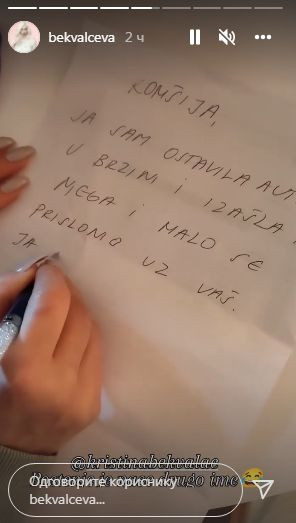 bekvalceva 2 ч
KOMŠIJA,
JA SAM OSTAVILA AUT
U BRZINI I IZAŠLA
MEGA I MALO SE
PRISLONIO UZ VAŠ.
JA
@kristinabekvalac
drugo ime 😂
Одговорите кориснику
bekvalceva...